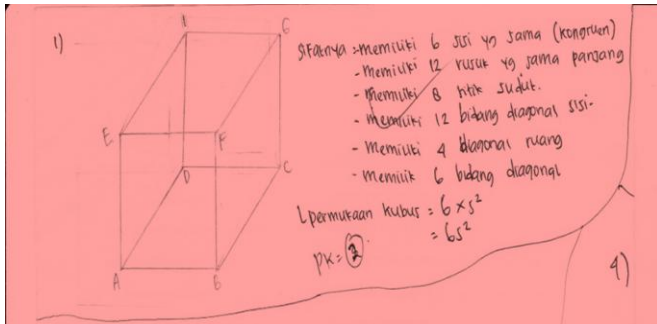 1)
I G
E F
D C
A B
sifatnya : - memiliki 6 sisi yg sama (kongruen)
- memiliki 12 rusuk yg sama panjang
- memiliki 8 titik sudut.
- memiliki 12 bidang diagonal sisi.
- memiliki 4 diagonal ruang
- memilik 6 bidang diagonal
L permukaan kubus = 6 x s²
= 6s²
PK = 3
4)